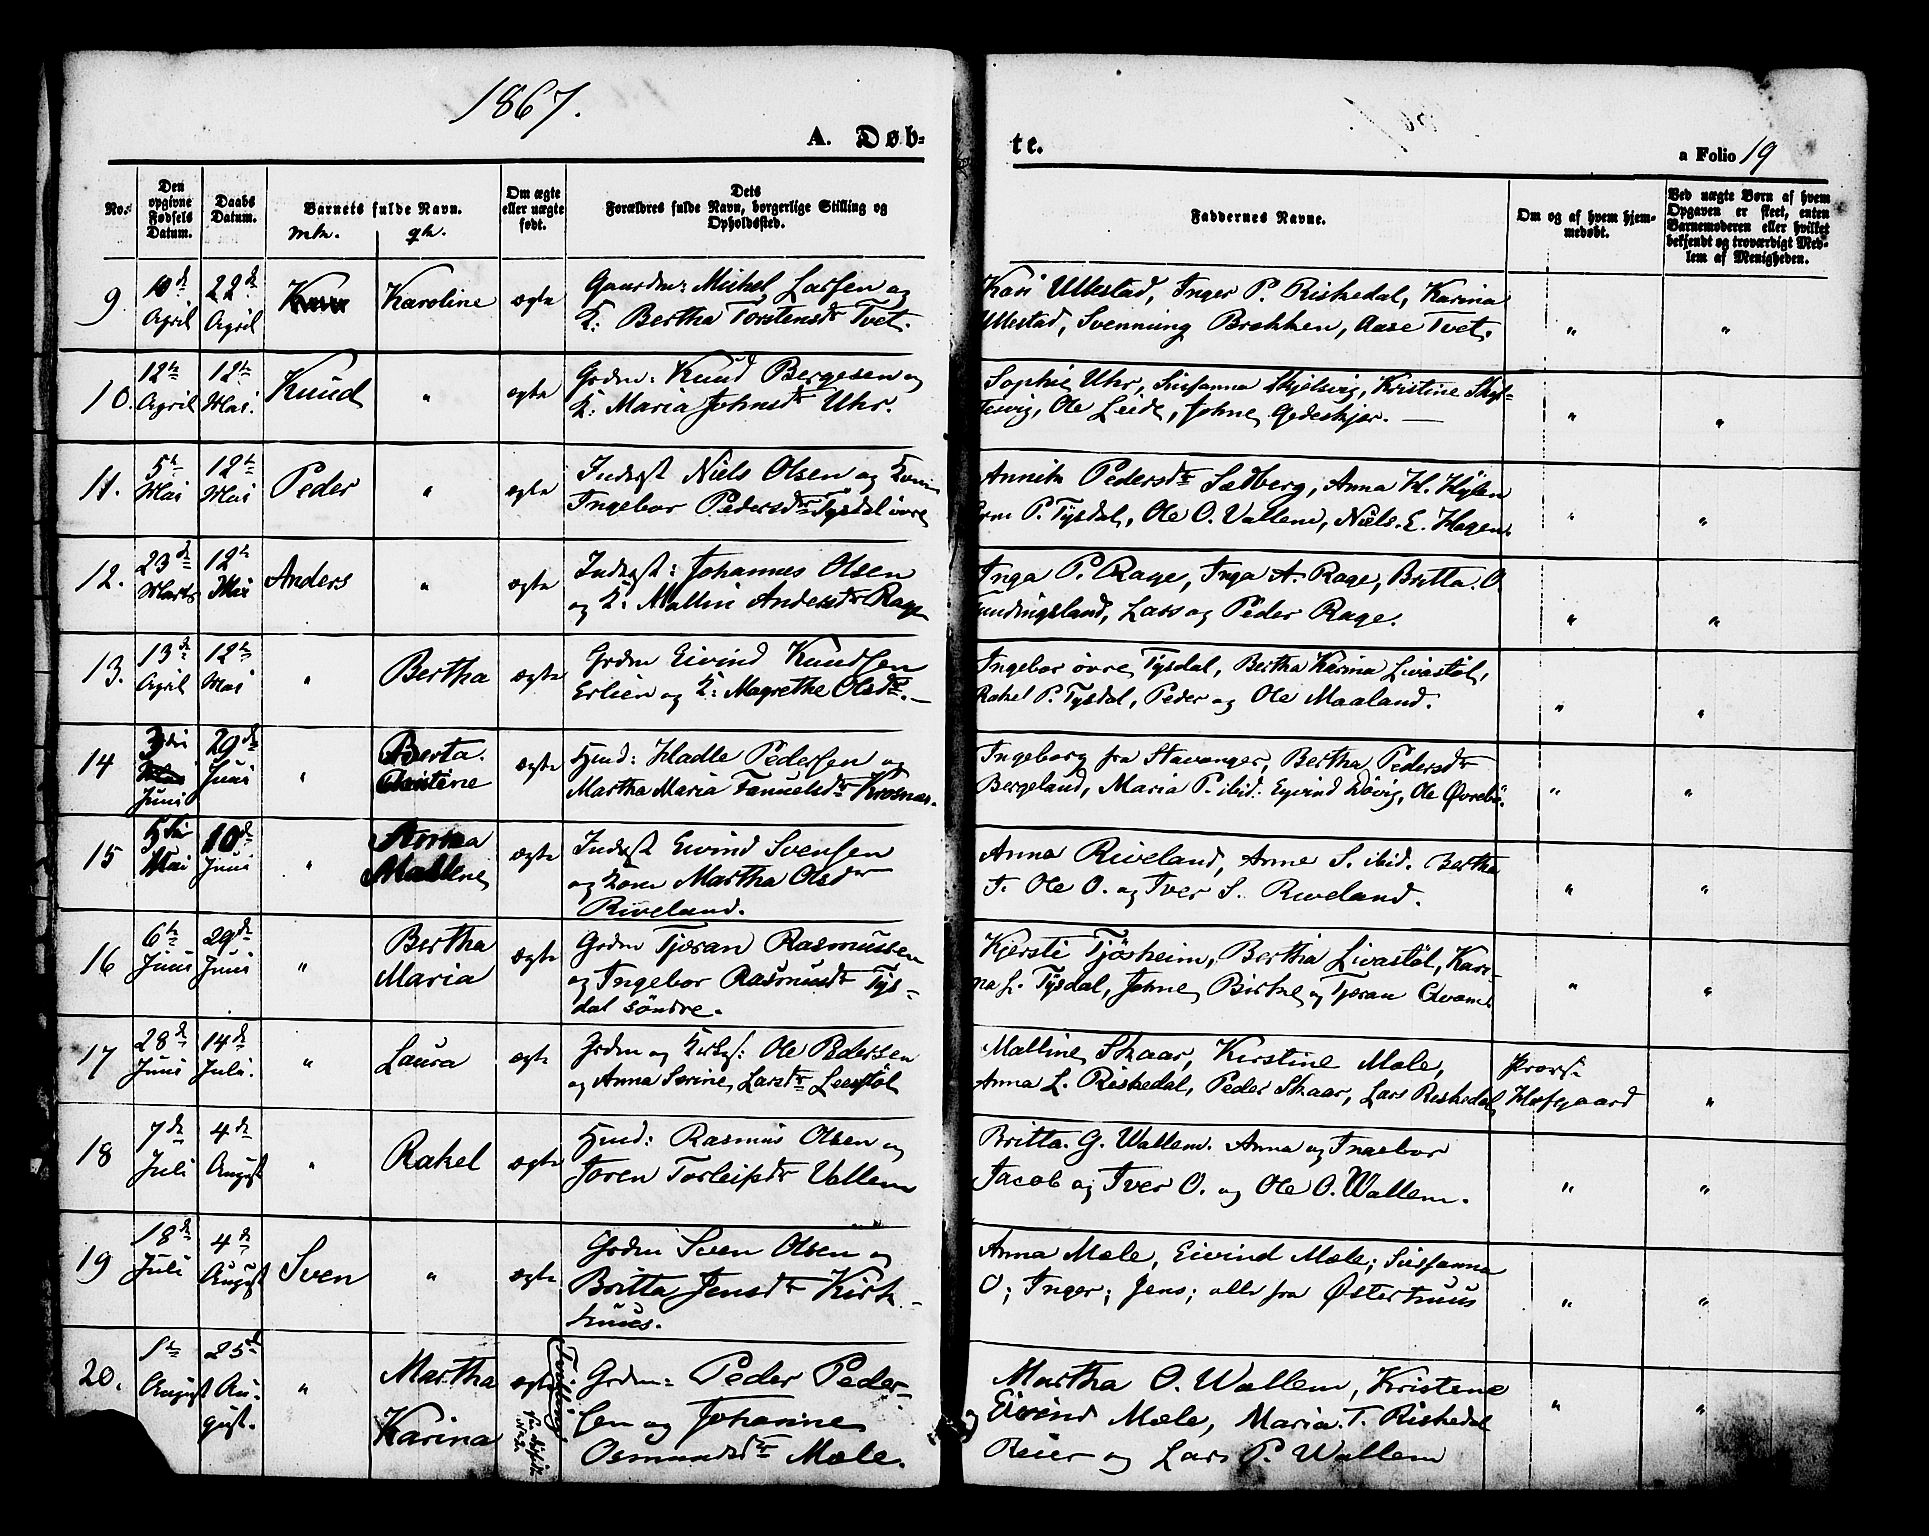 1867.
A. Døb-
te.
a Folio 19
No.
Den opgivne Fødsels Datum.
Daabs Datum.
Barnets fulde Navn.
mk. qk.
Om ægte eller uægte født.
Dets Forældres fulde Navn, borgerlige Stilling og Opholdssted.
Faddernes Navne.
Om og af hvem hjemmedøbt.
Ved uægte Børn af hvem Opgaven er skeet, enten Barnemoderen eller hvilket bekjendt og troværdigt Medlem af Menigheden.
9 10de April 22de April Karoline ægte
Gaardm: Michel Larssen og
K: Bertha Torstensdr Tvet.
Kari Ullestad, Inger P. Riskedal, Karina
Ullestad, Svenning Brekken, Aase Tvet. " "
10. 12te April 12te Mai. Knud " ægte
Grdm: Knud Bergesen og
K: Maria Johnsdr Uhr.
Sophie Uhr, Susanna Skjelvig, Kristine Skjel-
vig, Ole Leide, Johne Gedeskjær. — " "
11. 5te Mai 12te Mai Peder " ægte
Inderst Niels Olsen og Kone
Ingebor Pedersdr Tysdal øvre
Annika Pedersdr Sedberg, Anna H. Hylen
P. Tysdal, Ole O. Vallem, Niels E. Hagen. " "
12. 23de Marts 12te Mai Anders " ægte
Inderst: Johannes Olsen
og K: Mallin Andersdr Rage
Inga P. Rage, Inga A. Rage, Britta O.
Fundingsland, Lars og Peder Rage. " "
13. 13de April 12te Mai " Bertha ægte
Grdm Eivind Knudsen
Erlien og K: Magrethe Olsdr. —
Ingebor øvre Tysdal, Bertha Karina Livastøl,
Rakel P. Tysdal, Peder og Ole Maaland. " "
14 3die Juni 29de Juni " Berta Christine ægte
Hmd: Hadle Pedersen og
Martha Maria Tanuelsdr Krosnæs.
Ingeborg fra Stavanger, Bertha Pedersdr
Bergeland, Maria P. ibid: Eyvind Døvig, Ole Øvrebø. " "
15 5te Mai 10de Juni " Mallene ægte
Inderst Eivind Svensen
og Kone Martha Olsdr
Riveland.
Anna Riveland, Anne S. ibid. Bertha
T. Ole O. og Iver S. Riveland. " "
16 6te Juni 29de Juni " Bertha Maria ægte
Grdm Tjøran Rasmussen
og Ingebor Rasmusdr Tys-
dal søndre.
Kjersti Tjøsheim, Bertha Livastøl, Kari-
na L. Tysdal, Johne Birkne og Tjøran Qvame " "
17 28de Juni 14de Juli. " Laura ægte
Grdm og Kirkes: Ole Pedersen
og Anna Serine Larsdr Leerstøl
Malline Skaar, Kirstine Mæle,
Anna L. Riskedal, Peder Skaar, Lars Riskedal
Provst Hofgaard "
18 7de Juli 4de August " Rakel ægte
Hmd: Rasmus Olsen og
Joren Torleifsdr Vallem
Britta G. Wallem. Anna og Ingebor
Jacob og Iver O. og Ole O. Wallem. " "
19 18de Juli 4de August Sven " ægte
Grdm Sven Olsen og
Britta Jensdr Kirk-
huus.
Anna Mæle, Eivind Mæle; Susanna
O; Inger; Jens; alle fra Østerhuus " "
20. 1ste August 25de August. " Martha Karina ægte
Grdm: Peder Peder-
sen og Johanne
Osmundsdr Mæle.
Martha O. Wallem, Kristine
og Eivind Mæle, Maria T. Riskedal
Reier og Lars P. Wallem " "